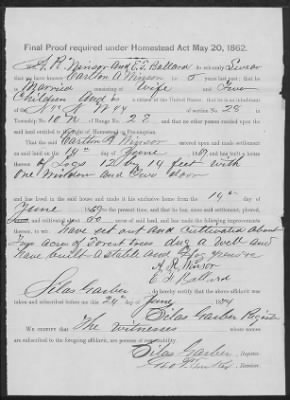 Final Proof required under Homestead Act May 20, 1862.
A. R. Winsor and E. F. Ballard do solemnly Swear
that we have known Carlton A Winsor for 5 years last past; that he
Married consisting of Wife and
Children and is a citizen of the United States; that he is an inhabitant
of the of section No. 28 in
Township No. 10 N of Range No. and that no other person resided upon the
said land entitled to the right of Homestead or Pre-emption.
That the said Carlton A Winsor entered upon and made settlement
on said land on the day of and has built a house
thereon of Logs 12 by 14 feet with
one window and one door
and has lived in the said house and made it his exclusive home from the 14th day of
June to the present time, and that he has, since said settlement, plowed,
and cultivated about acres of said land, and has made the following improvements
thereon, to wit: have set out and cultivated about
Two acres of Forest trees dug a Well and
have built a stable and
A. R. Winsor
E. F. Ballard
I, Silas Garber do hereby certify that the above affidavit was
taken and subscribed before me this 24th day of June 1874
Silas Garber Register
We certify that The Witnesses whose names
are subscribed to the foregoing affidavit, are persons of respectability.
Silas Garber, Register.
, Receiver.